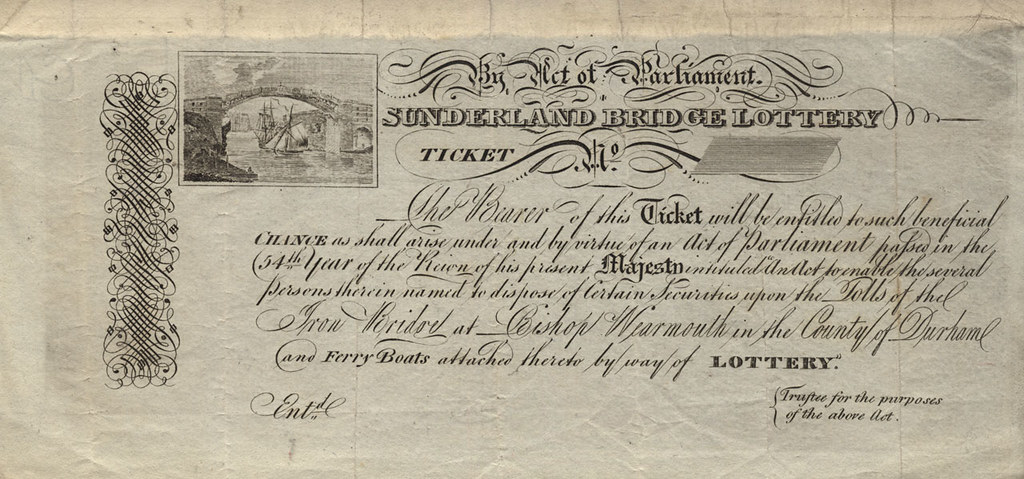 By Act of Parliament.
SUNDERLAND BRIDGE LOTTERY
TICKET No.
The Bearer of this Ticket will be entitled to such beneficial
CHANCE as shall arise under and by virtue of an Act of Parliament passed in the
54th Year of the Reign of his present Majesty intituled "An Act to enable the several
persons therein named to dispose of Certain Securities upon the Tolls of the
Iron Bridge at Bishop Wearmouth in the County of Durham
and Ferry Boats attached thereto by way of LOTTERY."
Entd
Trustee for the purposes
of the above Act.